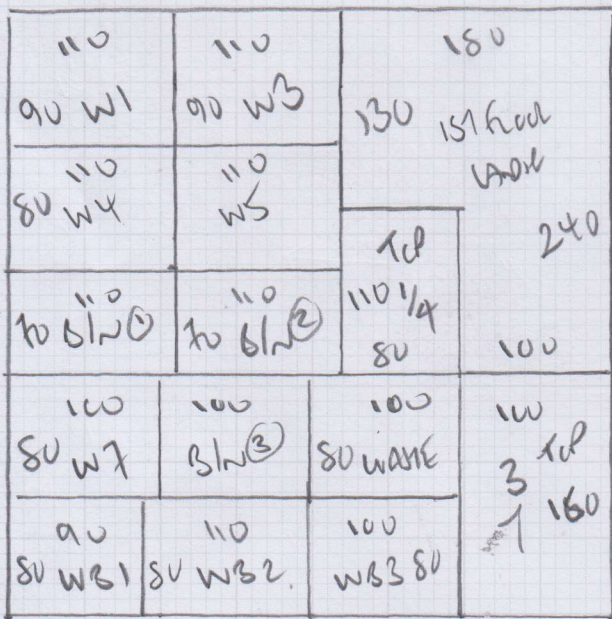 110
90 W1
110
90 W3
180
130 1ST FLOOR
240
110
80 W4
110
W5
TCP
110 1/4
80
100
110
70 BIN ①
110
70 BIN ②
100
80 W7
100
BIN ③
100
80 WASTE
100
3 TCP
160
90
80 WB1
110
80 WB2
100
WB3 80